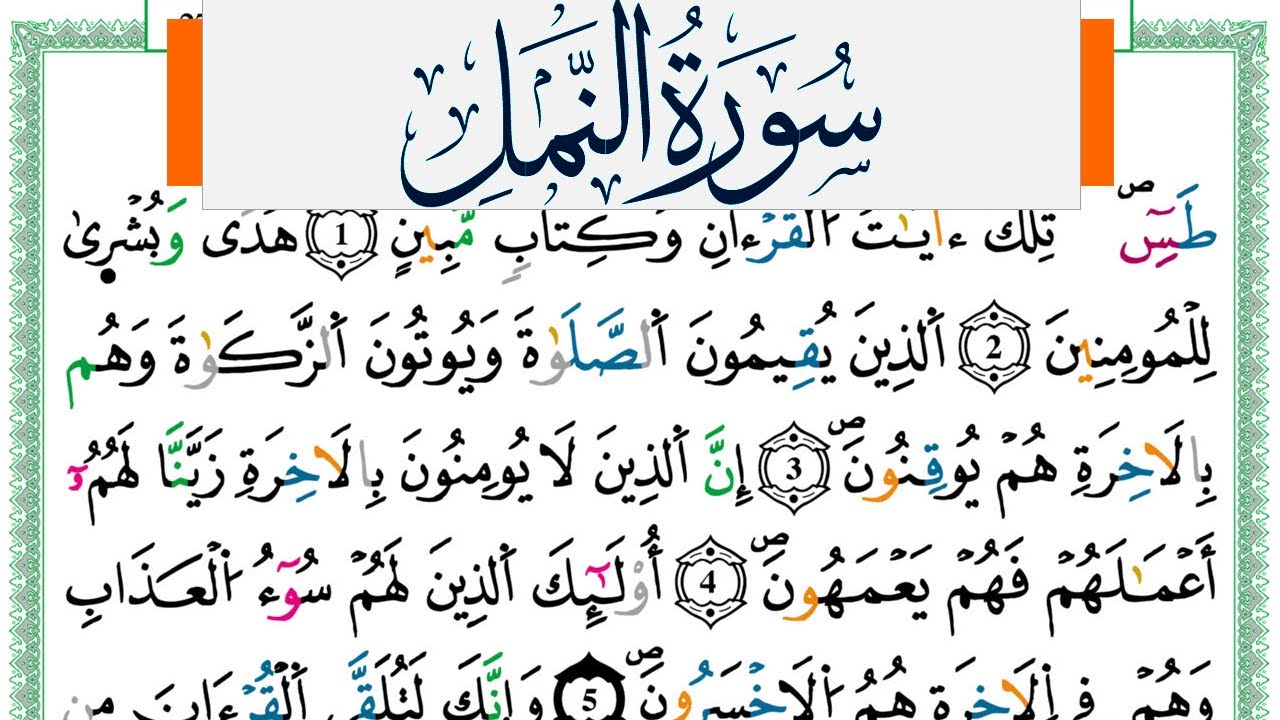 سُورَةُ النَّمْلِ
طَسِٓ تِلْكَ ءَايَٰتُ اُ۬لْقُرْءَانِ وَكِتَابٖ مُّبِينٍ 1 هُدىٗ وَبُشْر۪يٰ
لِلْمُومِنِينَ 2 اَ۬لذِينَ يُقِيمُونَ اَ۬لصَّلَوٰةَ وَيُوتُونَ اَ۬لزَّكَوٰةَ وَهُم
بِالَاخِرَةِ هُمْ يُوقِنُونَۖ 3 إِنَّ اَ۬لذِينَ لَا يُومِنُونَ بِالَاخِرَةِ زَيَّنَّا لَهُمُۥٓ
أَعْمَٰلَهُمْ فَهُمْ يَعْمَهُونَۖ 4 أُوْلَٰٓئِكَ اَ۬لذِينَ لَهُمْ سُوٓءُ اُ۬لْعَذَابِ
وَهُمْ فِے اِ۬لَاخِرَةِ هُمُ اُ۬لَاخْسَرُونَۖ 5 وَإِنَّكَ لَتُلَقَّى اَ۬لْقُرْءَانَ مِن